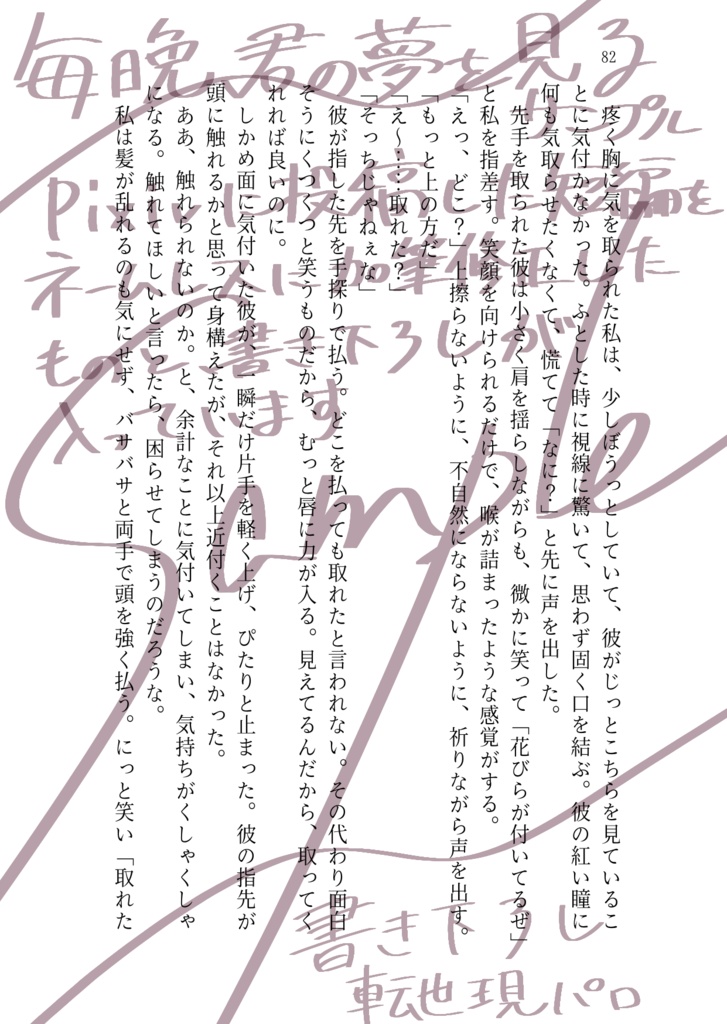 82
疼く胸に気を取られた私は、少しぼうっとしていて、彼がじっとこちらを見ているこ
とに気付かなかった。ふとした時に視線に驚いて、思わず固く口を結ぶ。彼の紅い瞳に
何も気取らせたくなくて、慌てて「なに？」と先に声を出した。
先手を取られた彼は小さく肩を揺らしながらも、微かに笑って「花びらが付いてるぜ」
と私を指差す。笑顔を向けられるだけで、喉が詰まったような感覚がする。
「えっ、どこ？」上擦らないように、不自然にならないように、祈りながら声を出す。
「もっと上の方だ」
「え〜……取れた？」
「そっちじゃねぇな」
彼が指した先を手探りで払う。どこを払っても取れたと言われない。その代わり面白
そうにくつくつと笑うものだから、むっと唇に力が入る。見えてるんだから、取ってく
れれば良いのに。
しかめ面に気付いた彼が、一瞬だけ片手を軽く上げ、ぴたりと止まった。彼の指先が
頭に触れるかと思って身構えたが、それ以上近付くことはなかった。
ああ、触れられないのか。と、余計なことに気付いてしまい、気持ちがくしゃくしゃ
になる。触れてほしいと言ったら、困らせてしまうのだろうな。
私は髪が乱れるのも気にせず、バサバサと両手で頭を強く払う。にっと笑い「取れた
毎晩、君の夢を見る
サンプル
pixivに投稿した短編を
ネームレスに加筆修正した
ものと、書き下ろしが
入っています
Sample
書き下ろし
転生現パロ